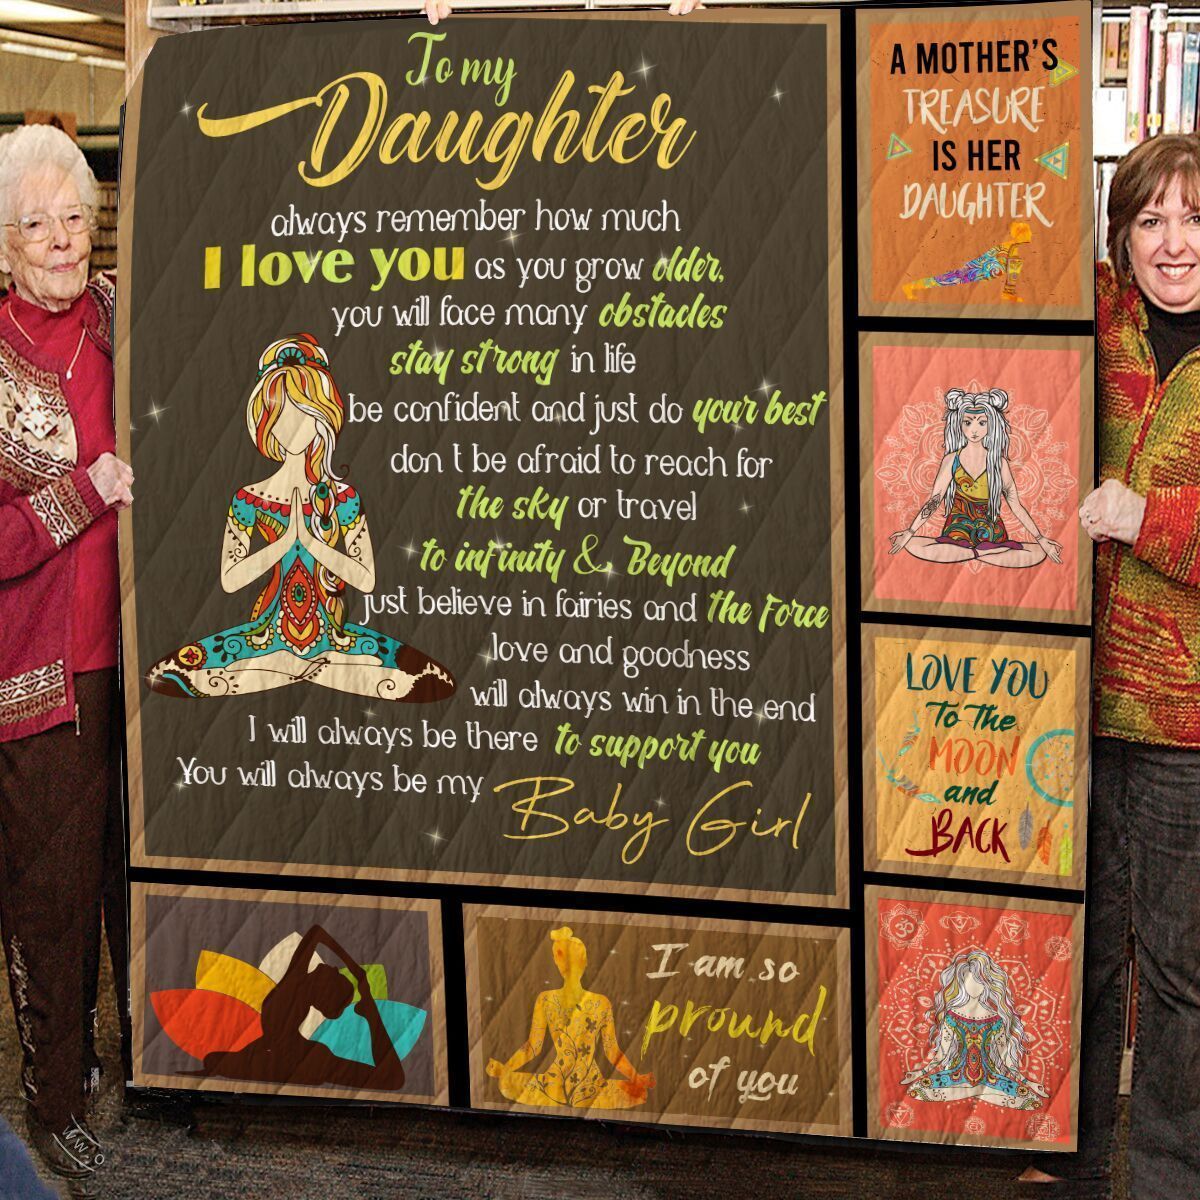 To my
Daughter
always remember how much
I love you as you grow older,
you will face many obstacles
stay strong in life
be confident and just do your best
don t be afraid to reach for
the sky or travel
to infinity & Beyond
just believe in fairies and the Force
love and goodness
will always win in the end
I will always be there to support you
You will always be my
Baby Girl
A MOTHER'S
TREASURE
IS HER
DAUGHTER
LOVE YOU
To the
MOON
and
BACK
I am so
pround
of you